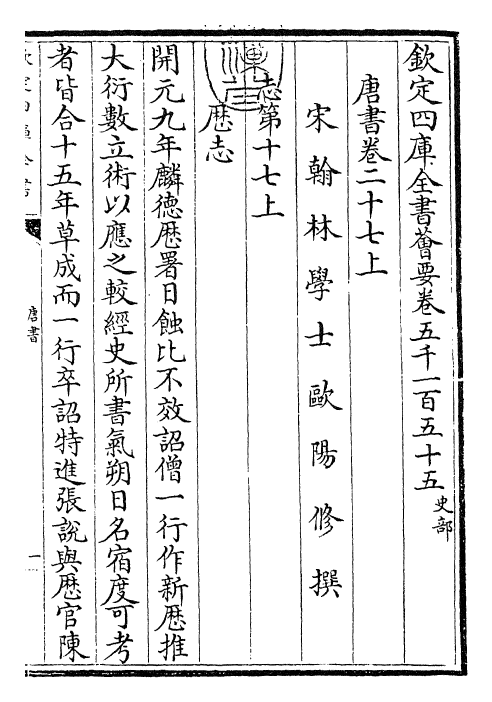 欽定四庫全書薈要卷五千一百五十五
史部
唐書卷二十七上
宋翰林學士歐陽修撰
志第十七上
厯志
開元九年麟德厯署日蝕比不效詔僧一行作新厯推
大衍數立術以應之較經史所書氣朔日名宿度可考
者皆合十五年草成而一行卒詔特進張說與厯官陳
欽定四庫全書
唐書
一